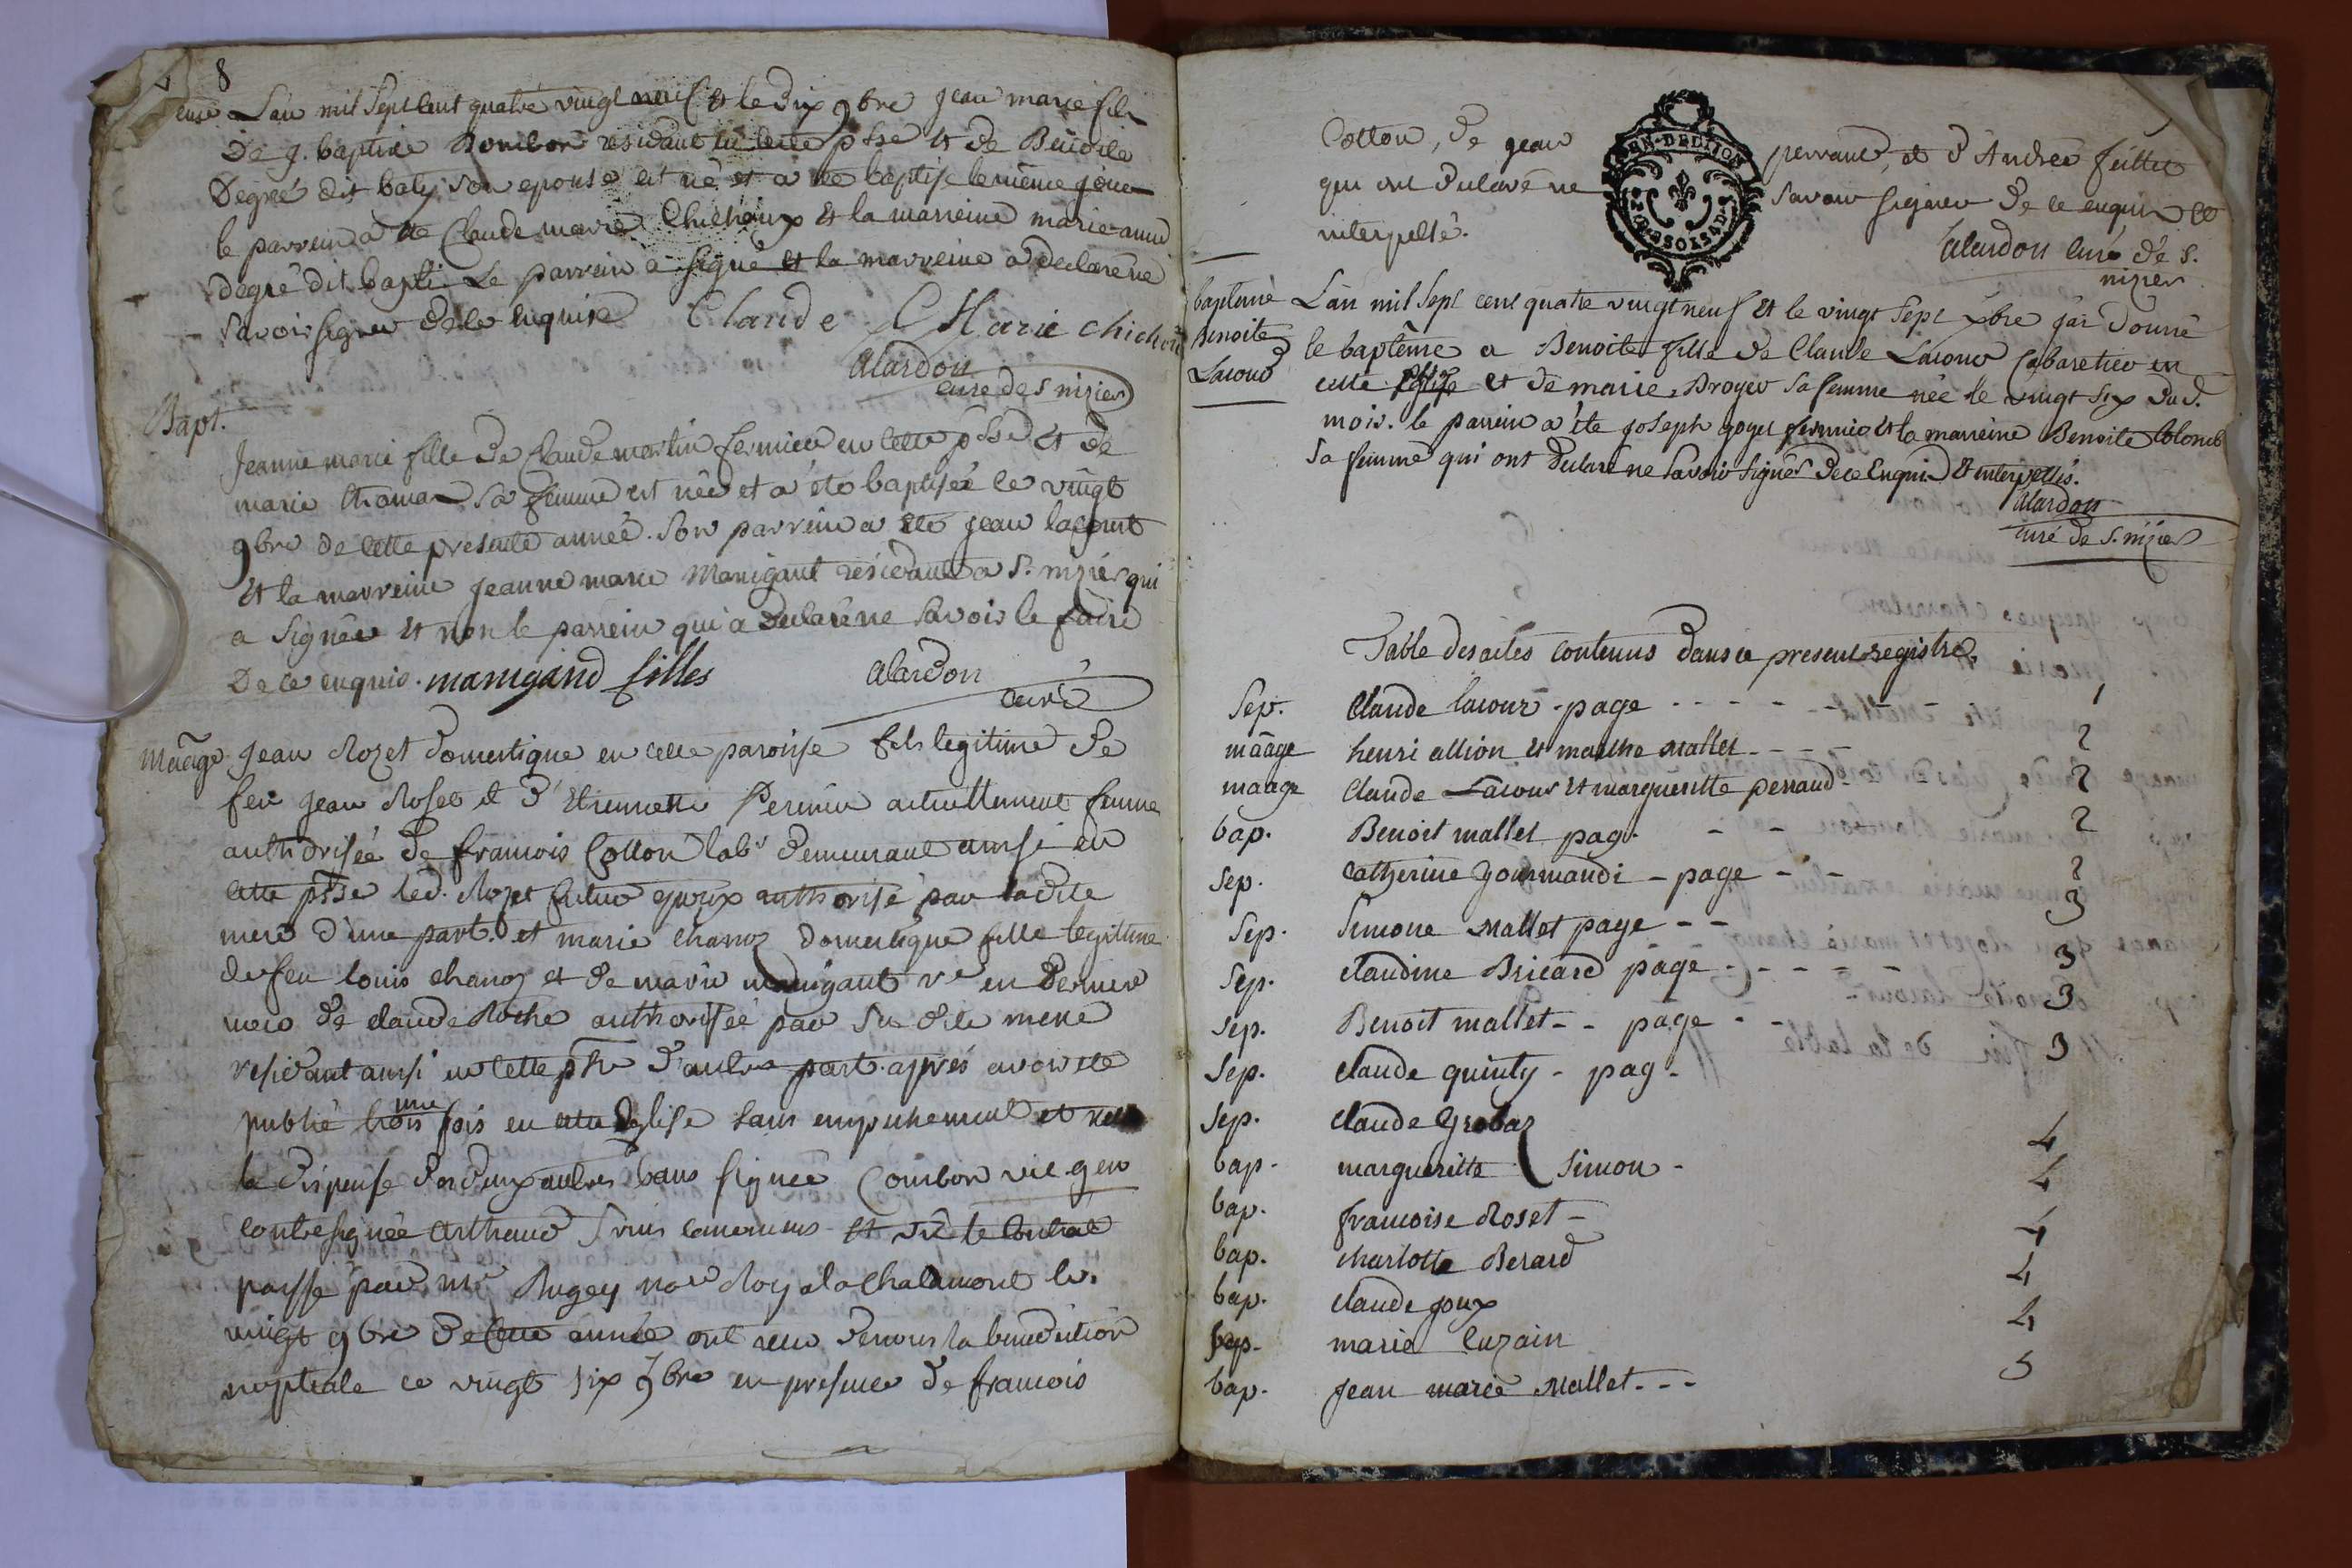 8
L'an mil sept cent quatre vingt neuf et le dix 9bre jean marie fils
De j. baptiste residant en cette psse et de Benoite
Degré dit baty son epouse est né et a été baptisé le même jour
le parrein a été Claude marie Chicheoux et la marreine marie anne
degré dit bapti. Le parrein a signé et la marreine a declaré ne
savoir signer de ce enquise Claude Marie chicheou
Alardon
curé de s nizier
Bapt.
Jeanne marie fille de Claude martin fermier en cette psse et de
marie thomas sa femme est née et a été baptisée le vingt
9bre de cette presente année. son parrein a été jean lacourt
Et la marreine jeanne marie Manigant résidante a s. nizier qui
a signée et non le parrein qui a declaré ne savoir le faire
De ce enquis. manigand filles Alardon
curé
Maãge jean Rozet domestique en cette paroisse fils legitime de
feu jean Roset et d'Etiennette Perrin actuellement femme
authorisée de francois Cotton labr demeurant aussi en
cette psse led. Rozet futur epoux authorisé par ladite
mere d'une part. et marie chanoz domestique fille legitime
de feu louis chanoz et de marie manigant ve en dernier
de claude Roche authorisée par sa dite mere
residant aussi en cette psse d'autre part. apprés avoir été
publié une fois en cette Eglise sans empechement et
la dispense des deux autres bans signée Courbon vic. gen
contresignée Arthaud et vû le contrat
passé par me Rugey nore Royal a Chalamont le
vingt 9bre de cette année ont recu de nous la benediction
nuptiale ce vingt six 9bre en presence de francois
Cotton, de jean perraud, et d'Andree feillet
qui ont declaré ne savoir signer de ce enquis et
interpellé.
Alardon curé de s.
nizier
GEN. DE LION
bapteme L'an mil sept cent quatre vingt neuf et le vingt sept xbre j'ai donné
Benoite le baptême a Benoite fille de Claude Lacour Cabaretier en
Lacour cette et de marie Broyer sa femme née le vingt six dud.
mois. le parrein a été joseph goyet fermier et la marreine Benoite Colomb
sa femme qui ont declaré ne savoir signer de ce Enquis et interpellés.
Alardon
curé de s. nizier
Table des actes contenus dans ce present registre.
Sep. Claude lacour - page - - - - - - - 1
maãge henri allion et marthe Mallet - - - - 2
maage Claude Lacour et marguerite perraud - 2
bap. Benoit mallet pag. - - 2
Sep. Catherine Gourmandi - page - - 2
Sep. Simone Mallet page - - 3
Sep. claudine Bricard page - - - - - 3
Sep. Benoit mallet - - page - - 3
Sep. claude quinty - pag - 3
Sep. claude Grobaz
bap - marguerite Simon - 4
bap. francoise Roset - 4
bap. charlotte Berard 4
bap. claude joux 4
bap. marie Cuzain 4
bap. jean marie Mallet - - - 5